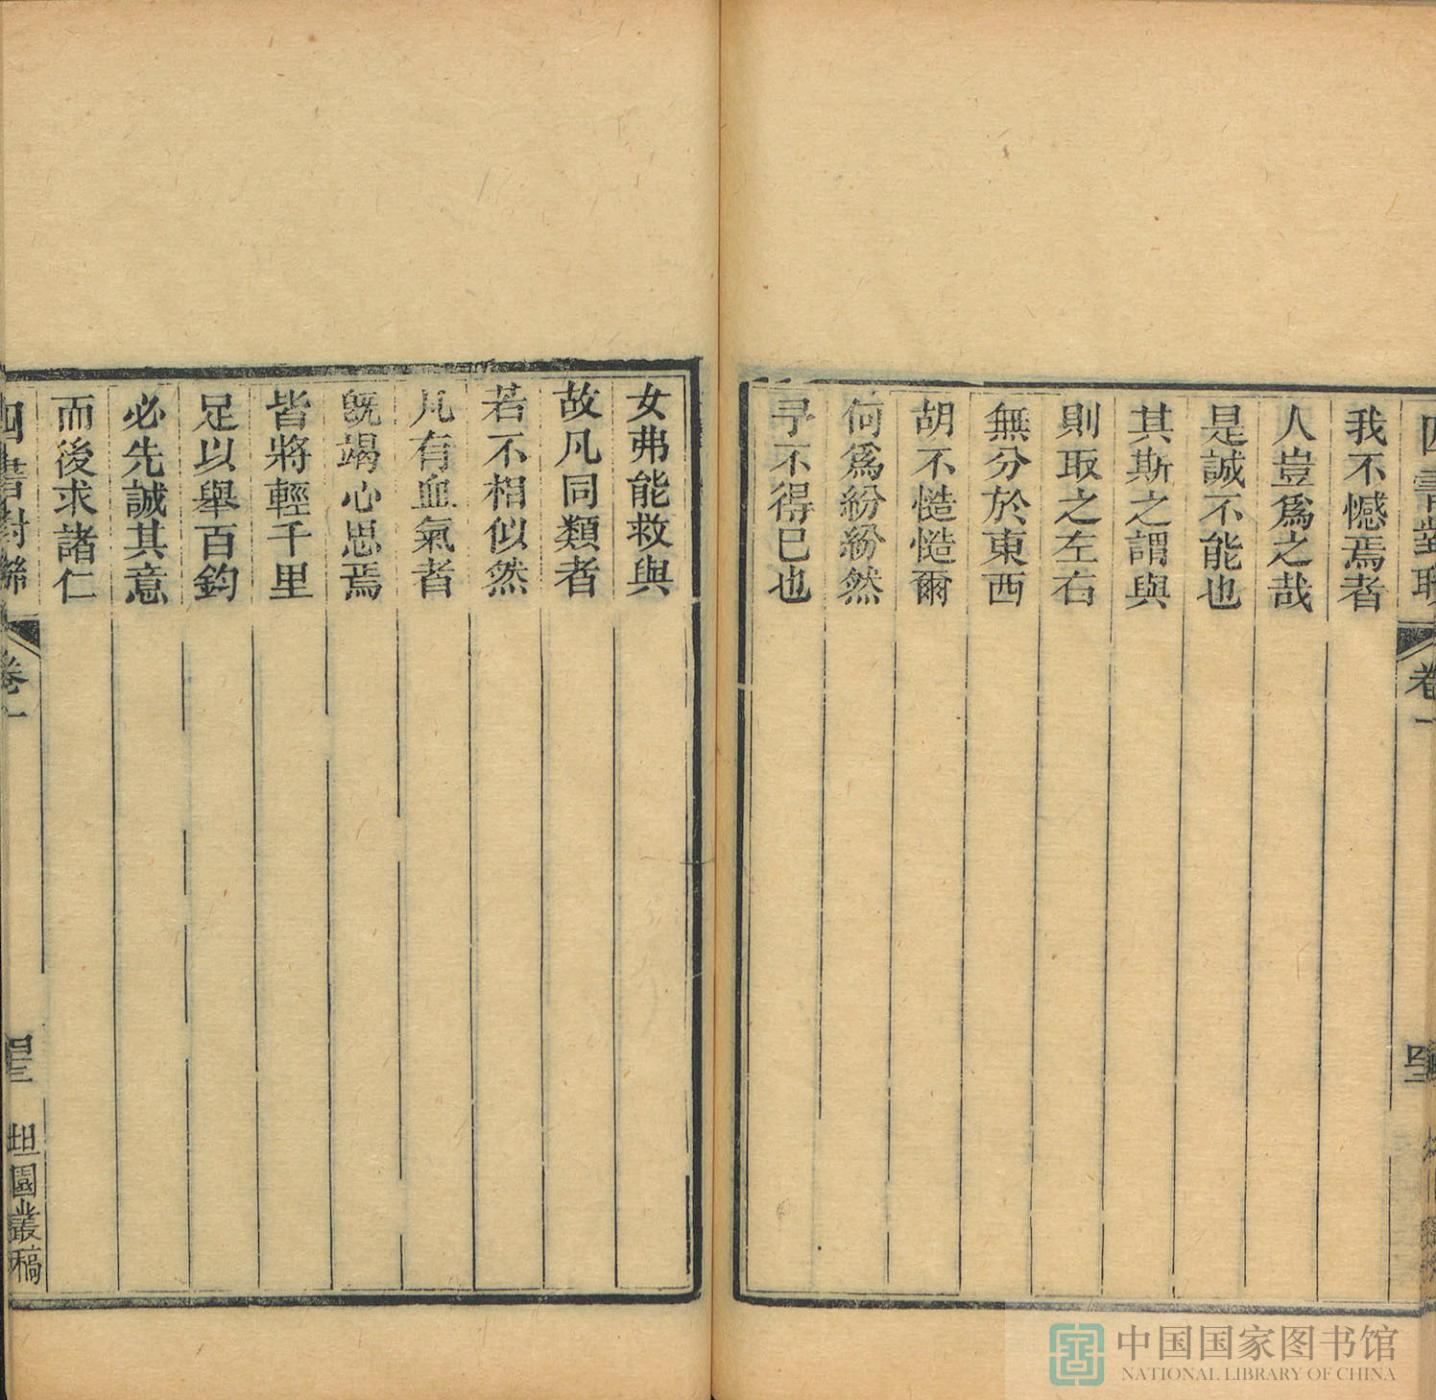 四書對聯 卷一
我不憾焉者
人豈爲之哉
是誠不能也
其斯之謂與
則取之左右
無分於東西
胡不慥慥爾
何爲紛紛然
予不得已也
女弗能救與
故凡同類者
若不相似然
凡有血氣者
旣竭心思焉
皆將輕千里
足以舉百鈞
必先誠其意
而後求諸仁
四書對聯 卷一 坦園叢稿
中国国家图书馆
NATIONAL LIBRARY OF CHINA